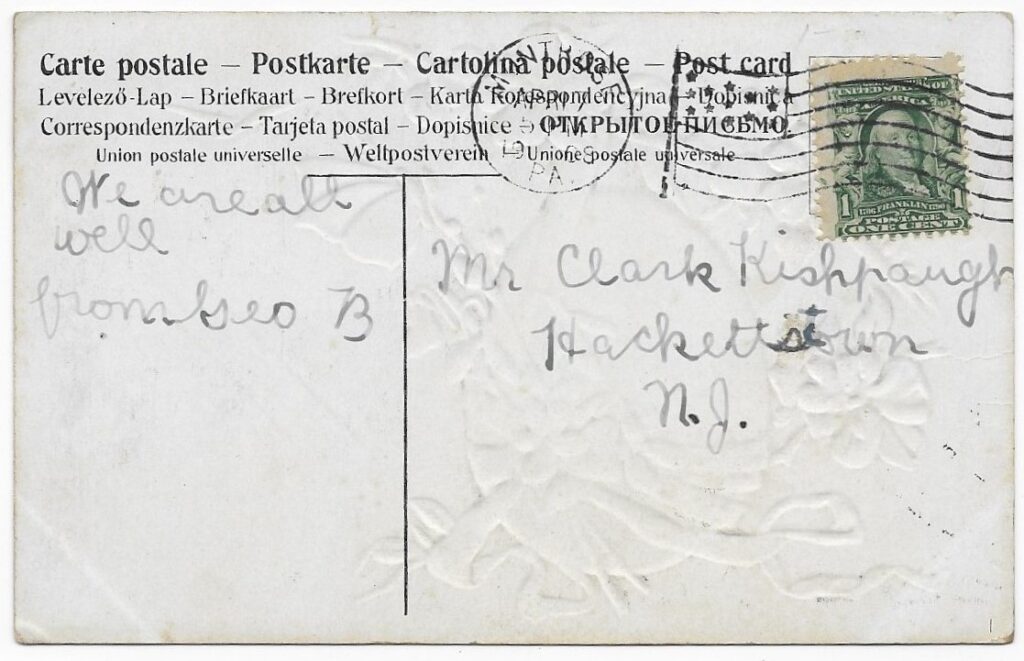 Carte postale – Postkarte – Cartolina postale – Post card
Levelező-Lap – Briefkaart – Brefkort – Karta Korespondencyjna – Dopisnica
Correspondenzkarte – Tarjeta postal – Dopisnice – ОТКРЫТОЕ ПИСЬМО.
Union postale universelle – Weltpostverein – Unione postale universale
MONTROSE
APR 17
PM
1908
PA.
UNITED STATES OF
AMERICA
1 1706 FRANKLIN 1790 1
POSTAGE
ONE CENT
We are all
well
from Geo B
Mr Clark Kishpaugh
Hackettstown
N.J.